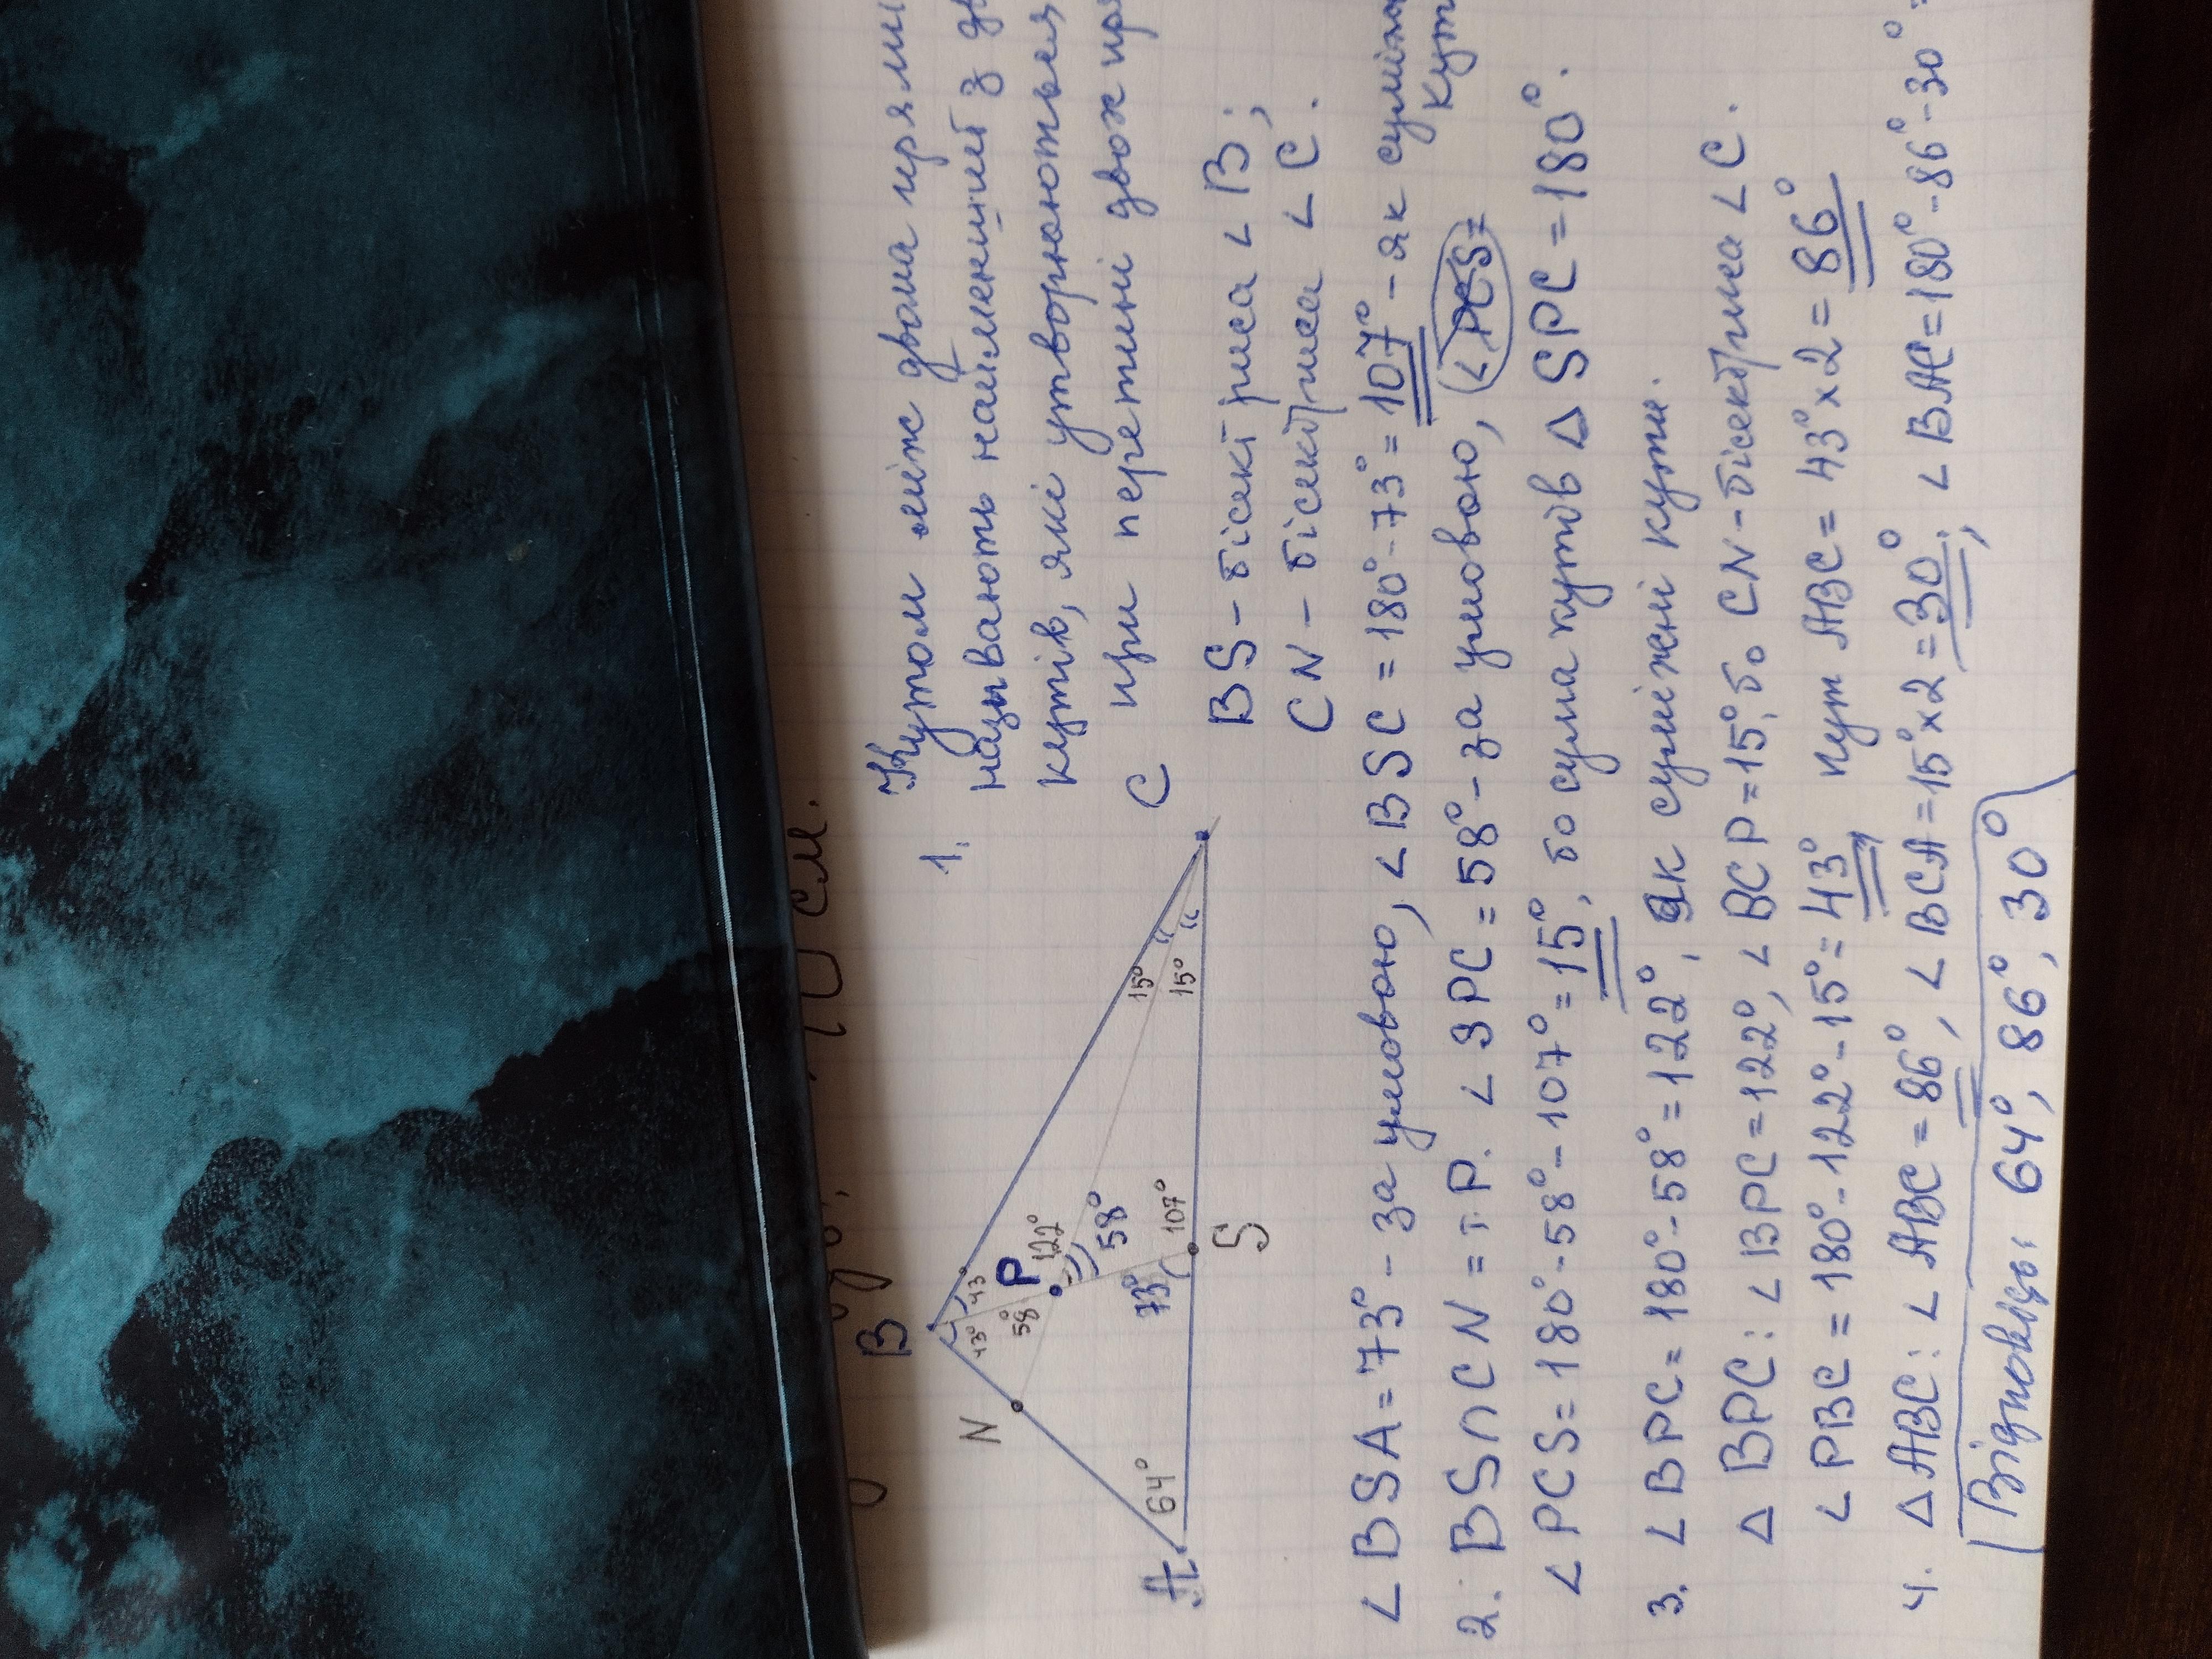 10 см.
1. Кутом між двома прями
називають найменший з
кутів, які утворюються
при перетині двох пря
B
N
P
A
S
C
43°
43
58°
122°
58°
73°
107°
64°
15°
15°
BS - бісектриса ∠B;
CN - бісектриса ∠C.
∠BSA = 73° - за умовою, ∠BSC = 180° - 73° = 107° - як суміжн
кут
2. BS∩CN = т.P. ∠SPC = 58° - за умовою,
∠PCS = 180° - 58° - 107° = 15°, бо сума кутов △SPC = 180°.
3. ∠BPC = 180° - 58° = 122°, як суміжні кути.
△BPC: ∠BPC = 122°, ∠BCP = 15°, бо CN - бісектриса ∠C.
∠PBC = 180° - 122° - 15° = 43° кут ABC = 43° x 2 = 86°
4. △ABC: ∠ABC = 86°, ∠BCA = 15° x 2 = 30°, ∠BAC = 180° - 86° - 30° =
Відповідь: 64°, 86°, 30°